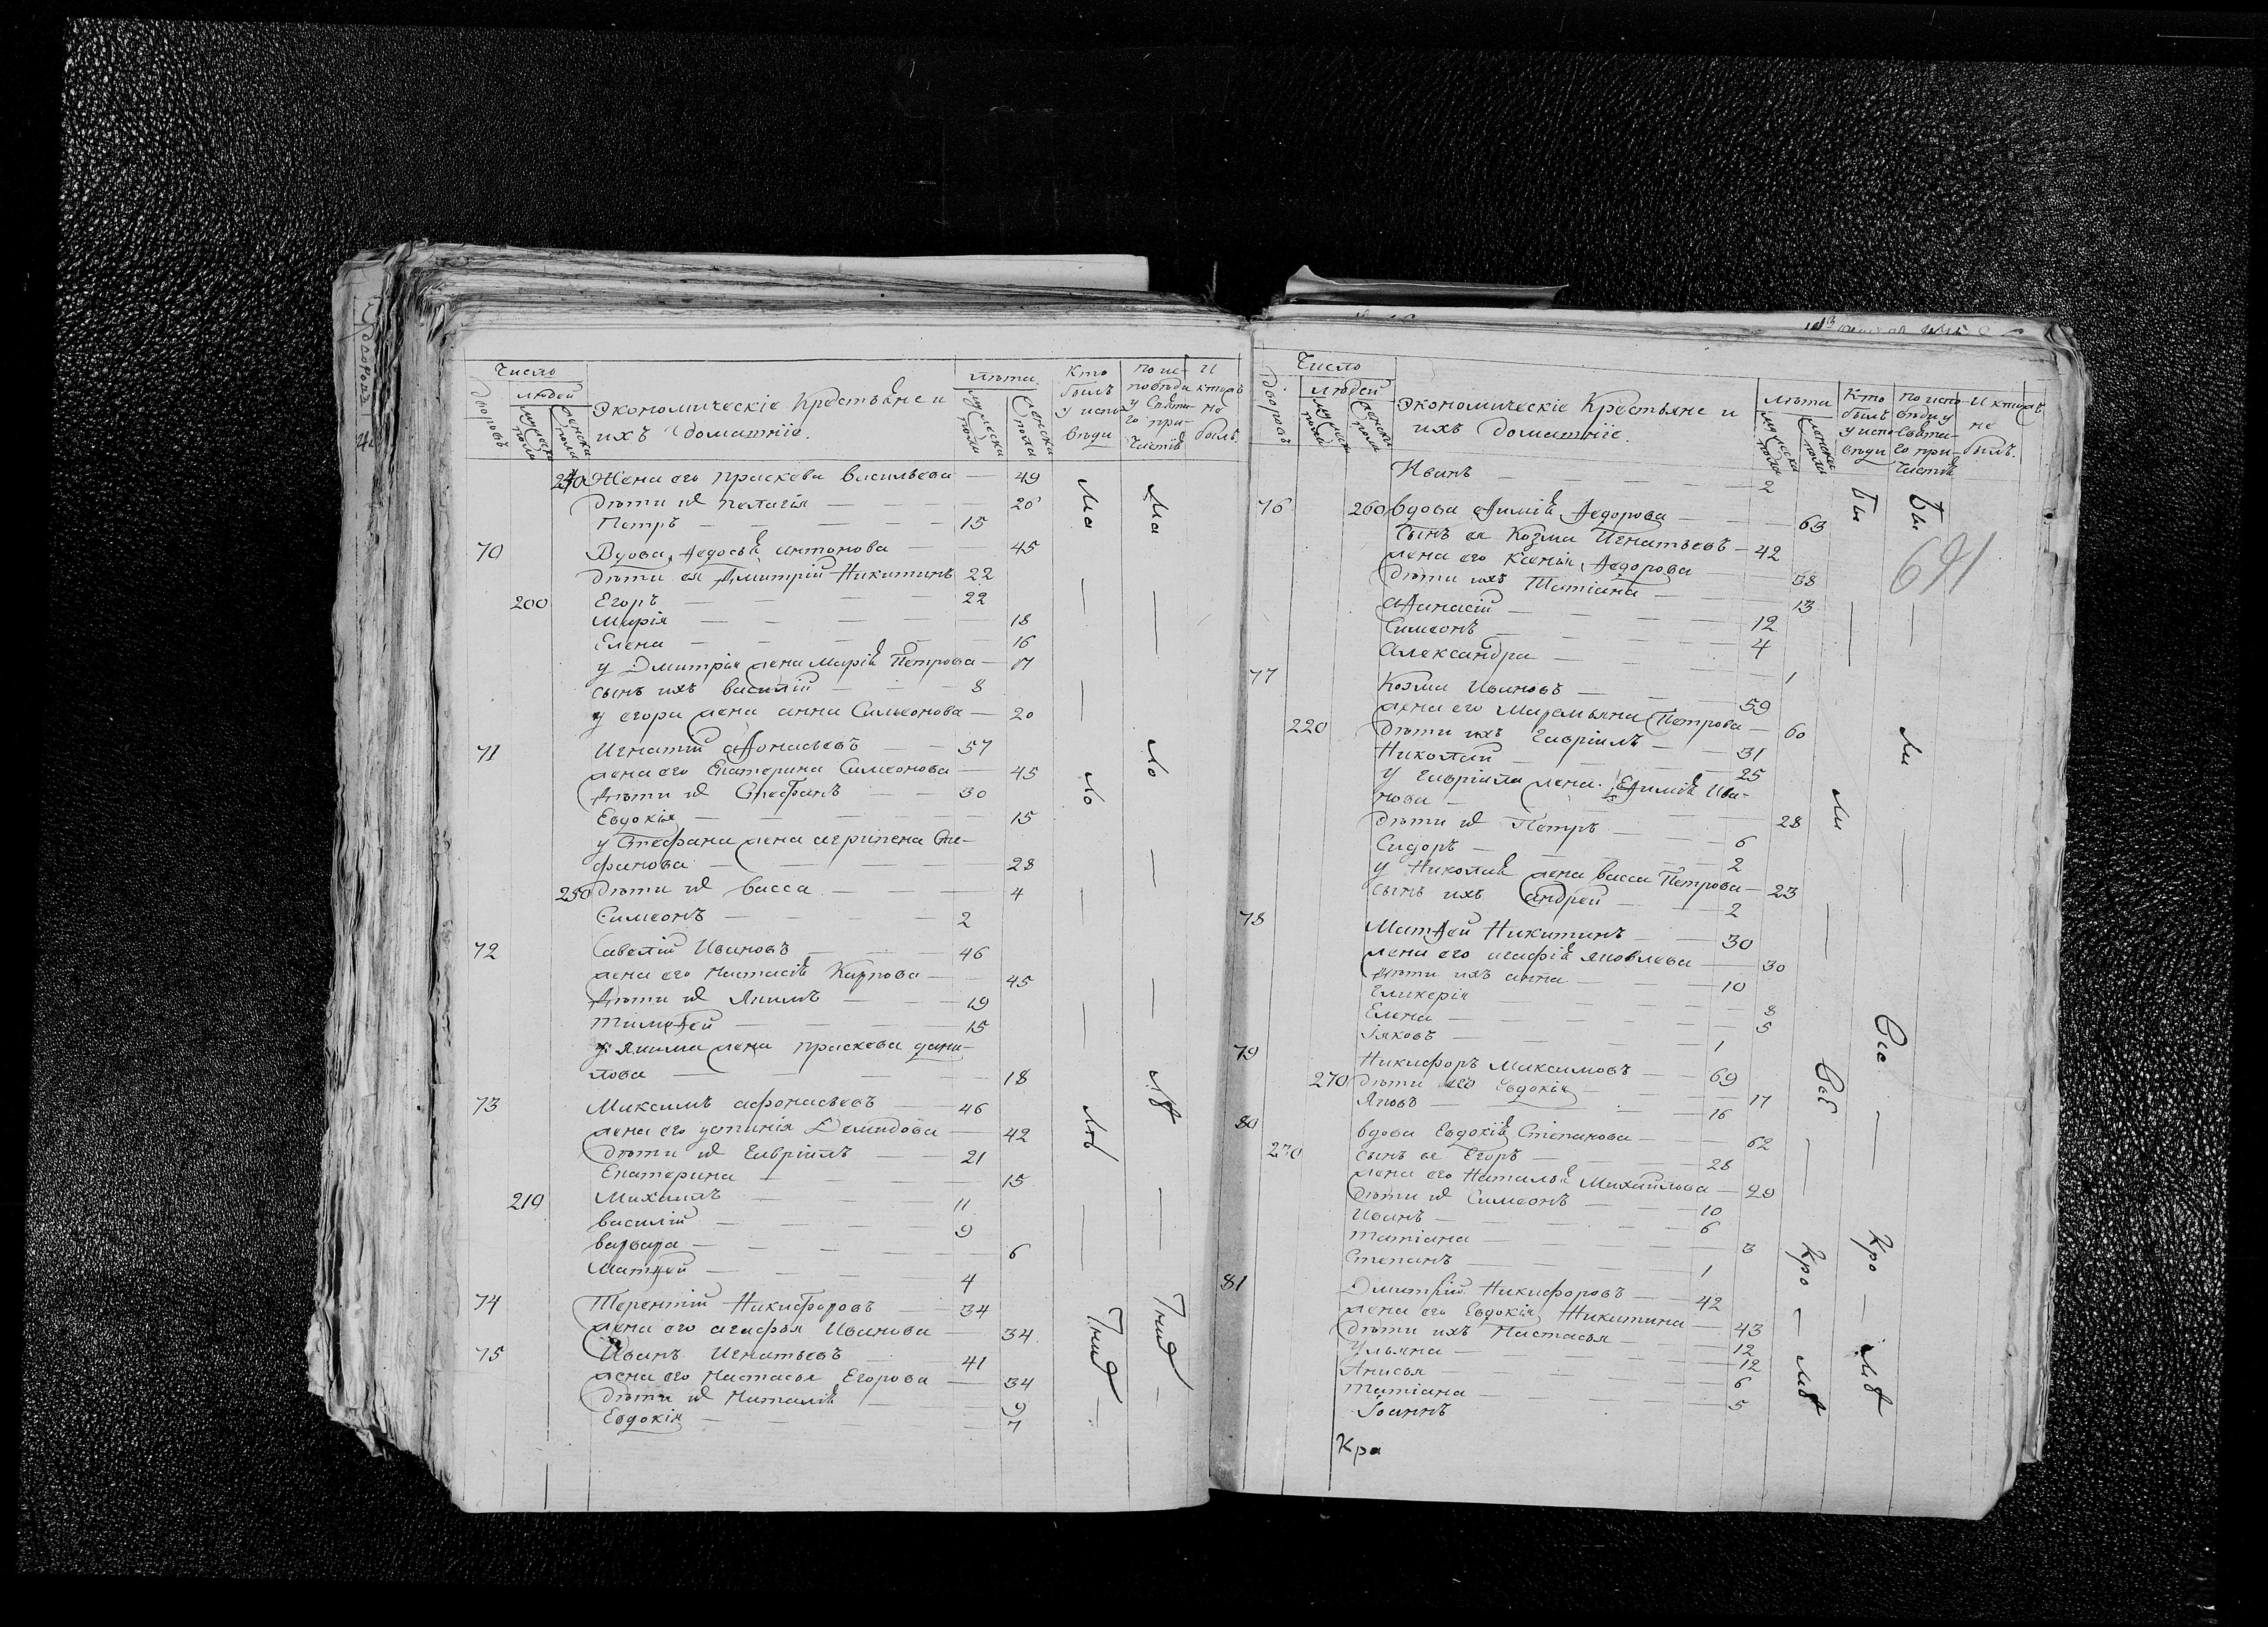 Число
людей
дворовъ
мужеска пола
женска пола
Экономическіе Крестьяне и
ихъ домашніе.
лѣта
мужеска пола
женска пола
Кто былъ у испо- вѣди
по ис- повѣди у Святы- го при- частія
И кто не былъ.
240 Жена его Праскева Васильева — 49
Дѣти их Пелагія — 26
Петръ — 15
70 Вдова Ѳедосья Антонова — 45
Дѣти ея Дмитрій Никитинъ 22
200 Егоръ — 22
Марія — 18
Елена — 16
у Дмитрія жена Марія Петрова —
сынъ ихъ Василій — 8
у Егора жена Анна Симеонова — 20
71 Игнатій Афонасьевъ — 57
жена его Екатерина Симеонова — 45
Дѣти их Стефанъ — 30
Евдокія — 15
у Стефана жена Агрипена Сте-
фанова — 28
250 Дѣти их Васса — 4
Симеонъ — 2
72 Савелій Ивановъ — 46
жена его Настасія Карпова — 45
Дѣти их Якимъ — 19
Тимоѳей — 15
у Якима жена Праскева Дани-
лова — 18
73 Максимъ Афонасьевъ — 46
жена его Устинія Демидова — 42
Дѣти их Гавріилъ — 21
Екатерина — 15
210 Михаилъ — 11
Василій — 9
Варвара — 6
Матѳей — 4
74 Терентій Никифоровъ — 34
жена его Агафья Иванова — 34
75 Иванъ Игнатьевъ — 41
жена его Настасья Егорова — 34
Дѣти их Наталія — 9
Евдокія — 7
Число
людей
дворовъ
мужеска пола
женска пола
Экономическіе Крестьяне и
ихъ домашніе.
лѣта
мужеска пола
женска пола
Кто былъ у испо- вѣди
по испо- вѣди у Святы- го при- частія
И кто не былъ.
Иванъ — 2
691
76 260 Вдова Афимія Ѳедорова — 63
Сынъ ея Козма Игнатьевъ — 42
жена его Ксенія Ѳедорова — 38
Дѣти ихъ Татіана — 13
Афанасій — 12
Симеонъ — 4
Александра — 1
77 Козма Ивановъ — 59
жена его Маремьяна Петрова — 60
220 Дѣти ихъ Гавріилъ — 31
Николай — 25
у Гавріила жена Афимія Ива-
нова — 28
Дѣти их Петръ — 6
Сидоръ — 2
у Николая жена Васса Петрова — 23
сынъ ихъ Андрей — 2
78 Матѳей Никитинъ — 30
жена его Агафія Яковлева — 30
Дѣти ихъ Анна — 10
Гликерія — 8
Елена — 5
Іяковъ — 1
79 Никифоръ Максимовъ — 69
270 Дѣти его Евдокія — 17
Яковъ — 16
80 Вдова Евдокія Степанова — 62
230 Сынъ ея Егоръ — 28
жена его Наталья Михайлова — 29
Дѣти их Симеонъ — 10
Иванъ — 6
Татіана — 3
Степанъ — 1
81 Дмитрій Никифоровъ — 42
жена его Евдокія Никитина — 43
Дѣти ихъ Настасья — 12
Ульяна — 12
Анисья — 6
Татіана — 5
Іоаннъ
Кра